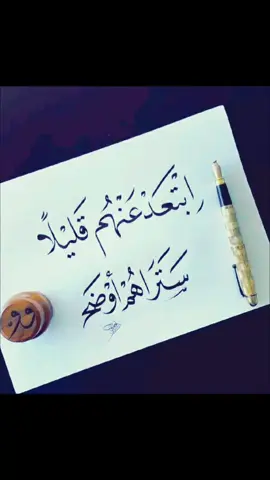 اِبْتَعِدْ عَنْهُم قَلِيْلاً
سَتَرَاهُمْ أَوْضَحْ